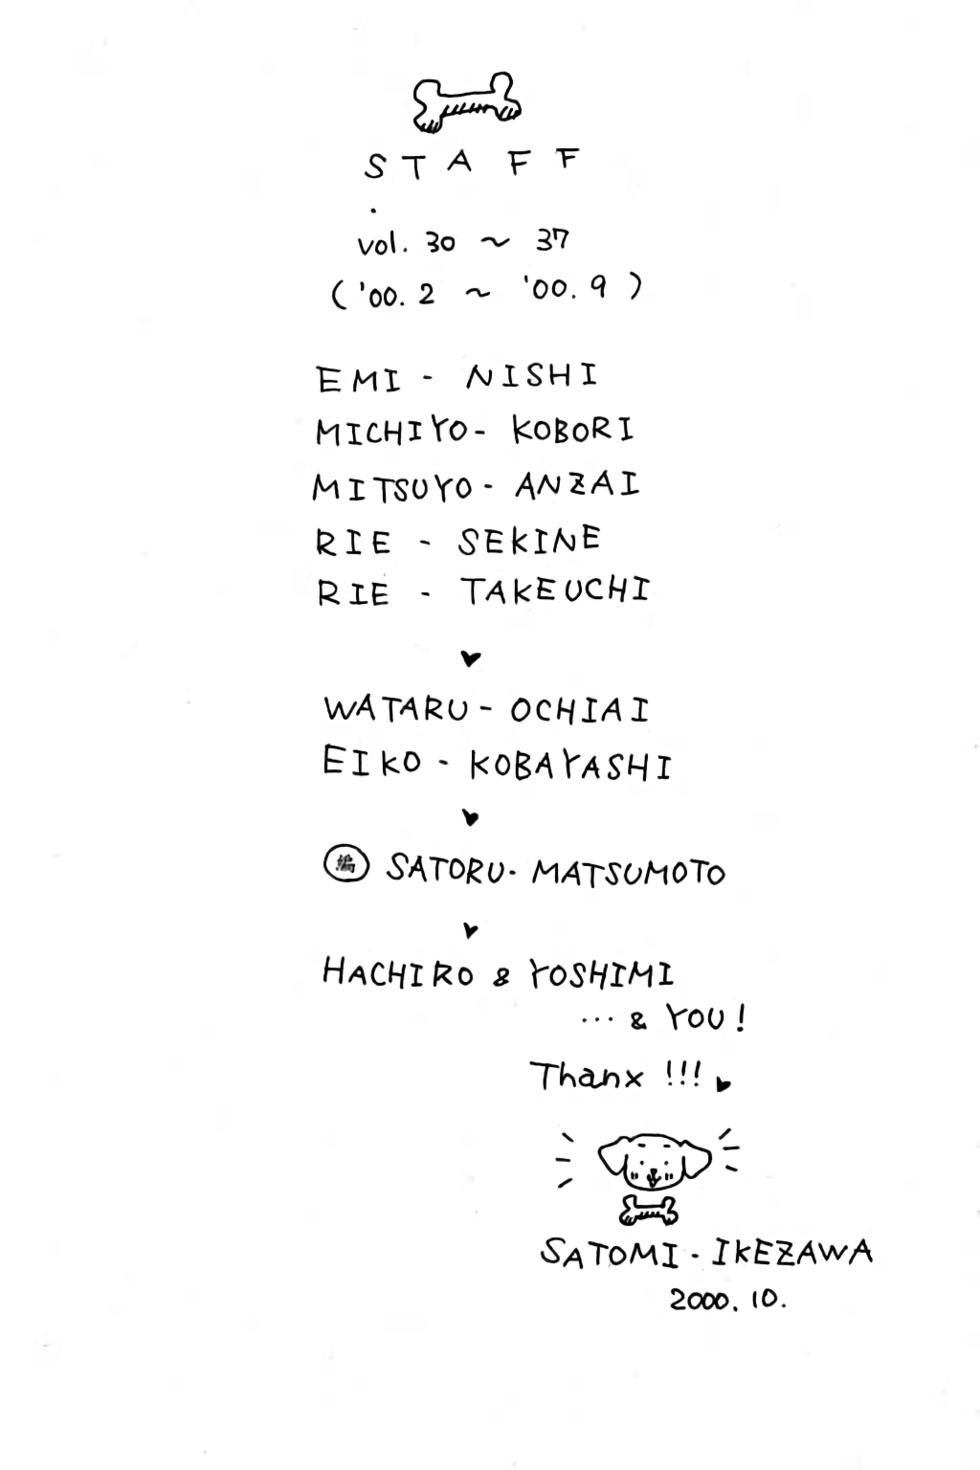 STAFF
vol. 30 ~ 37
('00. 2 ~ '00. 9)
EMI - NISHI
MICHIYO - KOBORI
MITSUYO - ANZAI
RIE - SEKINE
RIE - TAKEUCHI
♥
WATARU - OCHIAI
EIKO - KOBAYASHI
♥
編 SATORU - MATSUMOTO
♥
HACHIRO & YOSHIMI
... & YOU!
Thanx !!! ♥
SATOMI - IKEZAWA
2000. 10.